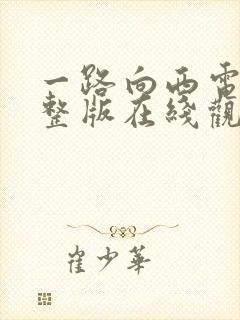 一路向西電
整版在綫觀
崔少華